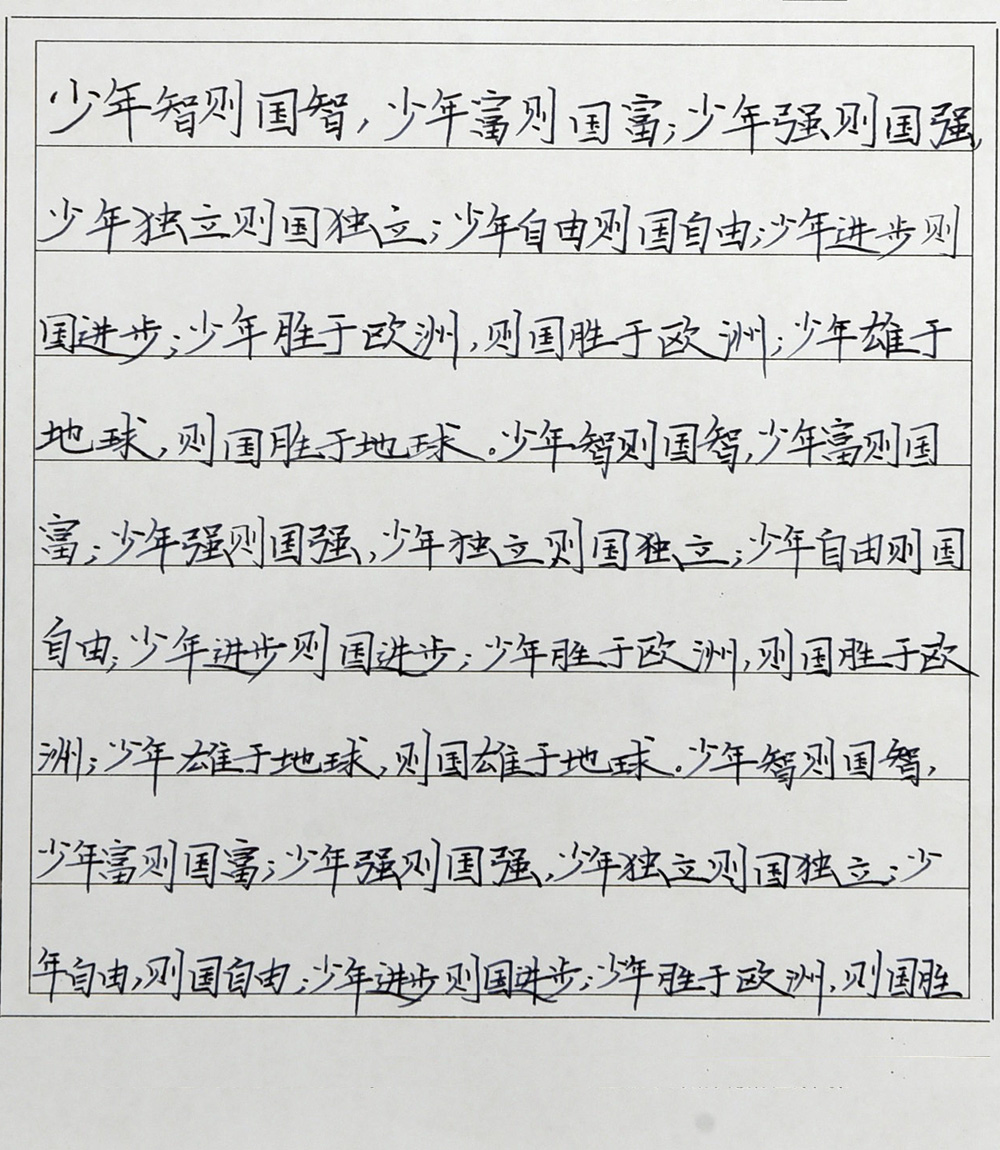 少年智则国智,少年富则国富;少年强则国强,
少年独立则国独立;少年自由则国自由;少年进步则
国进步;少年胜于欧洲,则国胜于欧洲;少年雄于
地球,则国胜于地球。少年智则国智,少年富则国
富;少年强则国强,少年独立则国独立;少年自由则国
自由;少年进步则国进步;少年胜于欧洲,则国胜于欧
洲;少年雄于地球,则国雄于地球。少年智则国智,
少年富则国富;少年强则国强,少年独立则国独立;少
年自由,则国自由;少年进步则国进步;少年胜于欧洲,则国胜